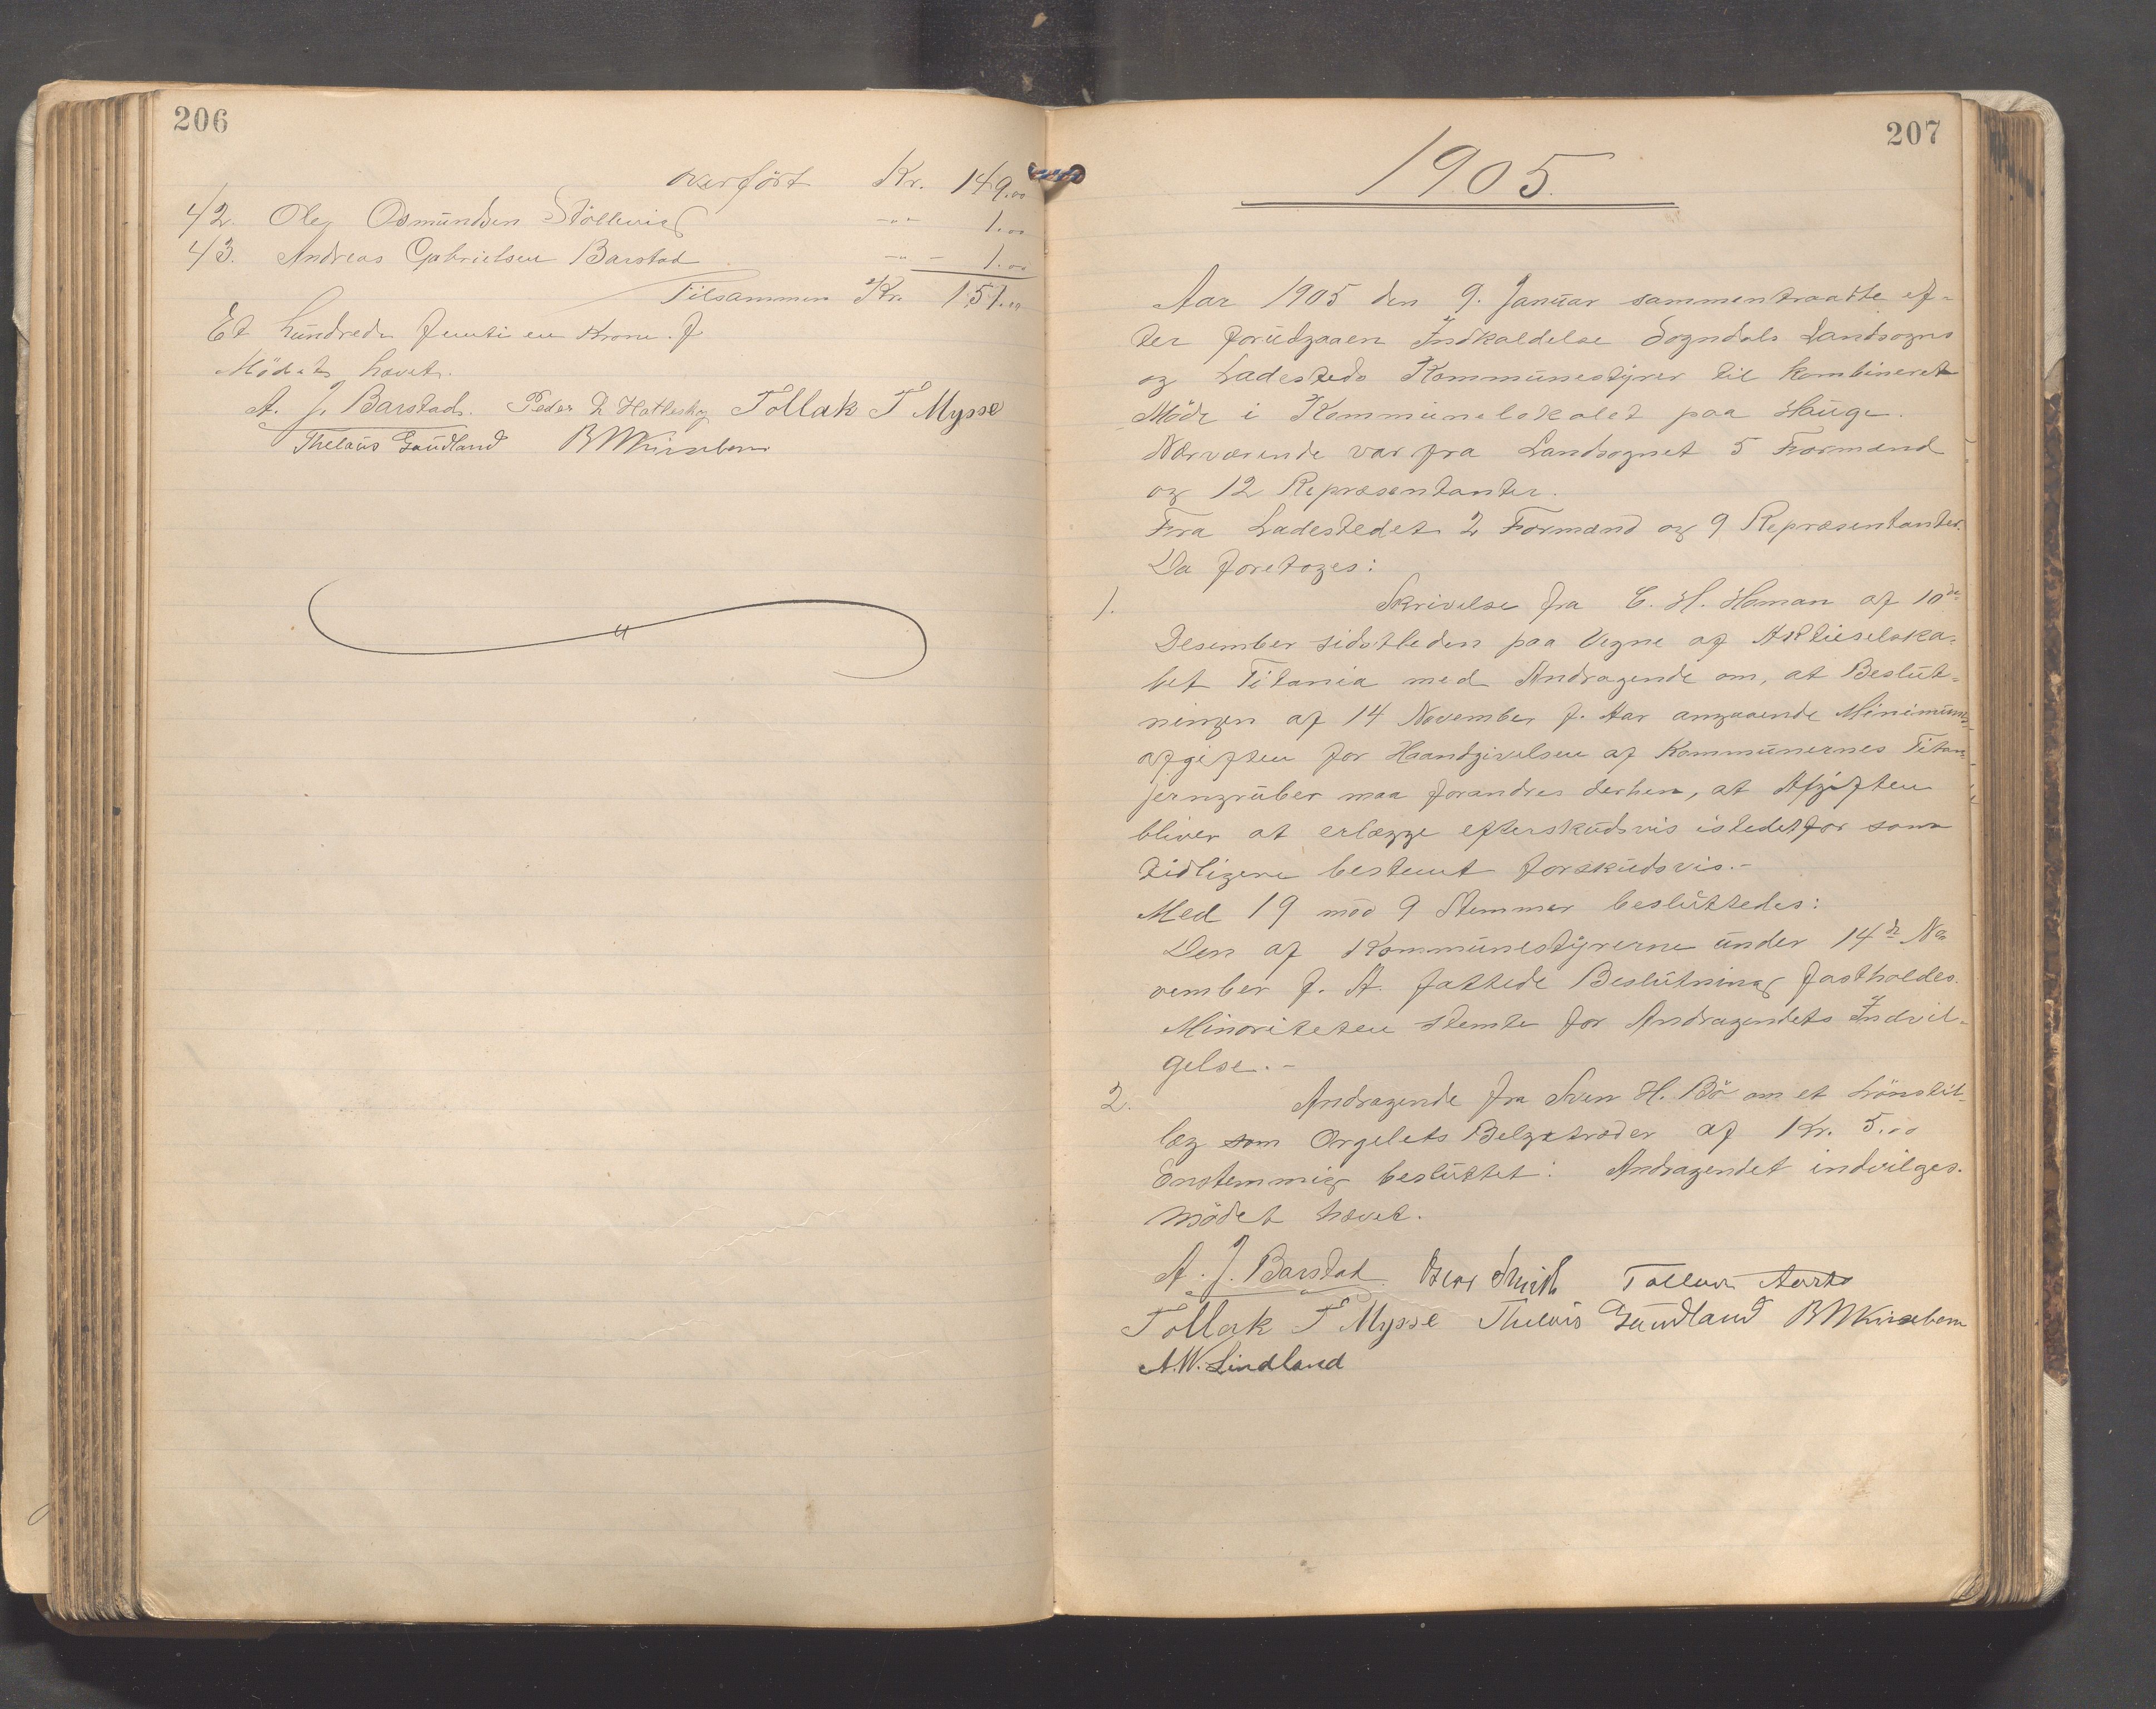 206
overført Kr. 149.00
42. Ole Osmundsen Stöllevig -"- 1.00
43. Andreas Gabrielsen Barstad -"- 1.00
Tilsammen Kr. 151.00
Et hundrede femti en Krone.
Mödet hævet.
A. J. Barstad. Peder D. Hatleskog Tollak T Mysse
Thelaus Gaudland
207
1905.
Aar 1905 den 9. Januar sammentraadte ef-
ter forudgaaen Indkaldelse Sogndals Landsogns
og Ladesteds Kommunestyrer til kombineret
Möde i Kommunelokalet paa Hauge.
Nærværende var fra Landsognet 5 Formænd
og 12 Repræsentanter.
Fra Ladestedet 2 Formænd og 9 Repræsentanter.
Da foretoges:
1. Skrivelse fra C. H. Homan af 10de
Desember sidstleden paa Vegne af Aktieselska-
bet Titania med Andragende om, at Beslut-
ningen af 14 November f. Aar angaaende Minimums-
afgiften for Haandgivelsen af Kommunernes Titan-
jerngruber maa forandres derhen, at Afgiften
bliver at erlægge efterskudsvis istedetfor som
tidligere bestemt forskudsvis.-
Med 19 mod 9 Stemmer besluttedes:
Den af Kommunestyrerne under 14de No-
vember f. A. fattede Beslutning fastholdes.
Minoriteten stemte for Andragendets Indvil-
gelse.-
2. Andragende fra Sven H. Bö om et Lönstil-
læg som Orgelets Belgetræder af Kr. 5.00
Enstemmig besluttet: Andragendet indvilges.
Mödet hævet.
A. J. Barstad Oscar Smith
Tollak T Mysse Thelaus Gaudland
A. W. Lindland